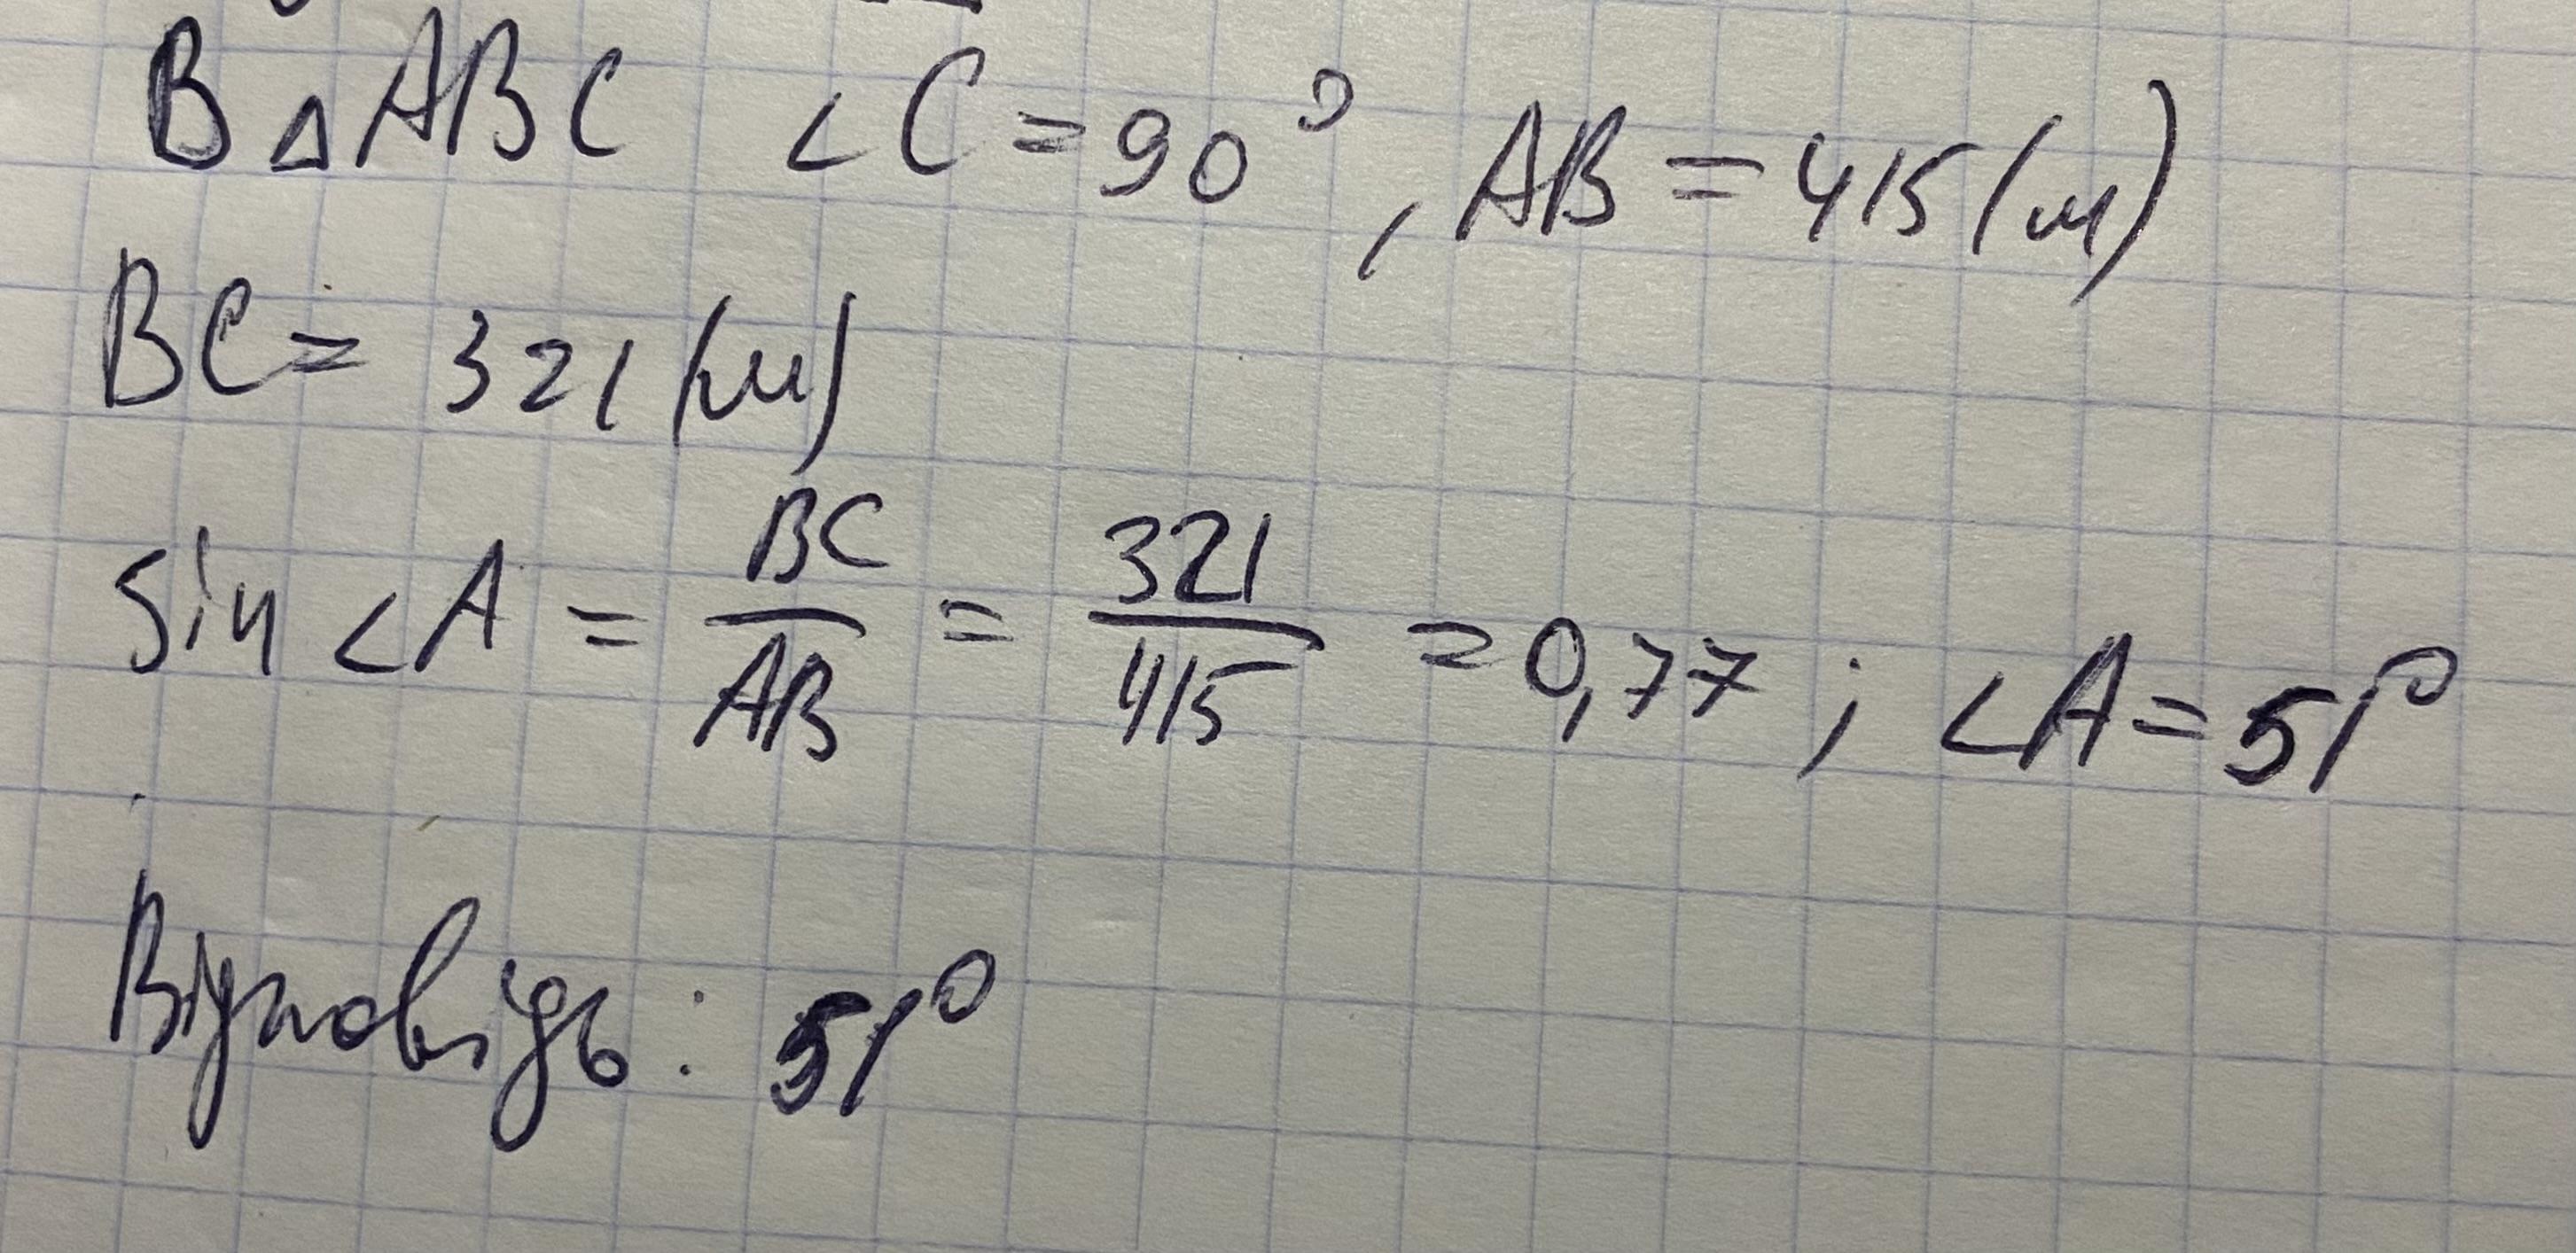 В △ABC ∠C = 90°, AB = 415 (м)
BC = 321 (м)
sin ∠A = BC/AB = 321/415 = 0,77 ; ∠A = 51°
Відповідь: 51°